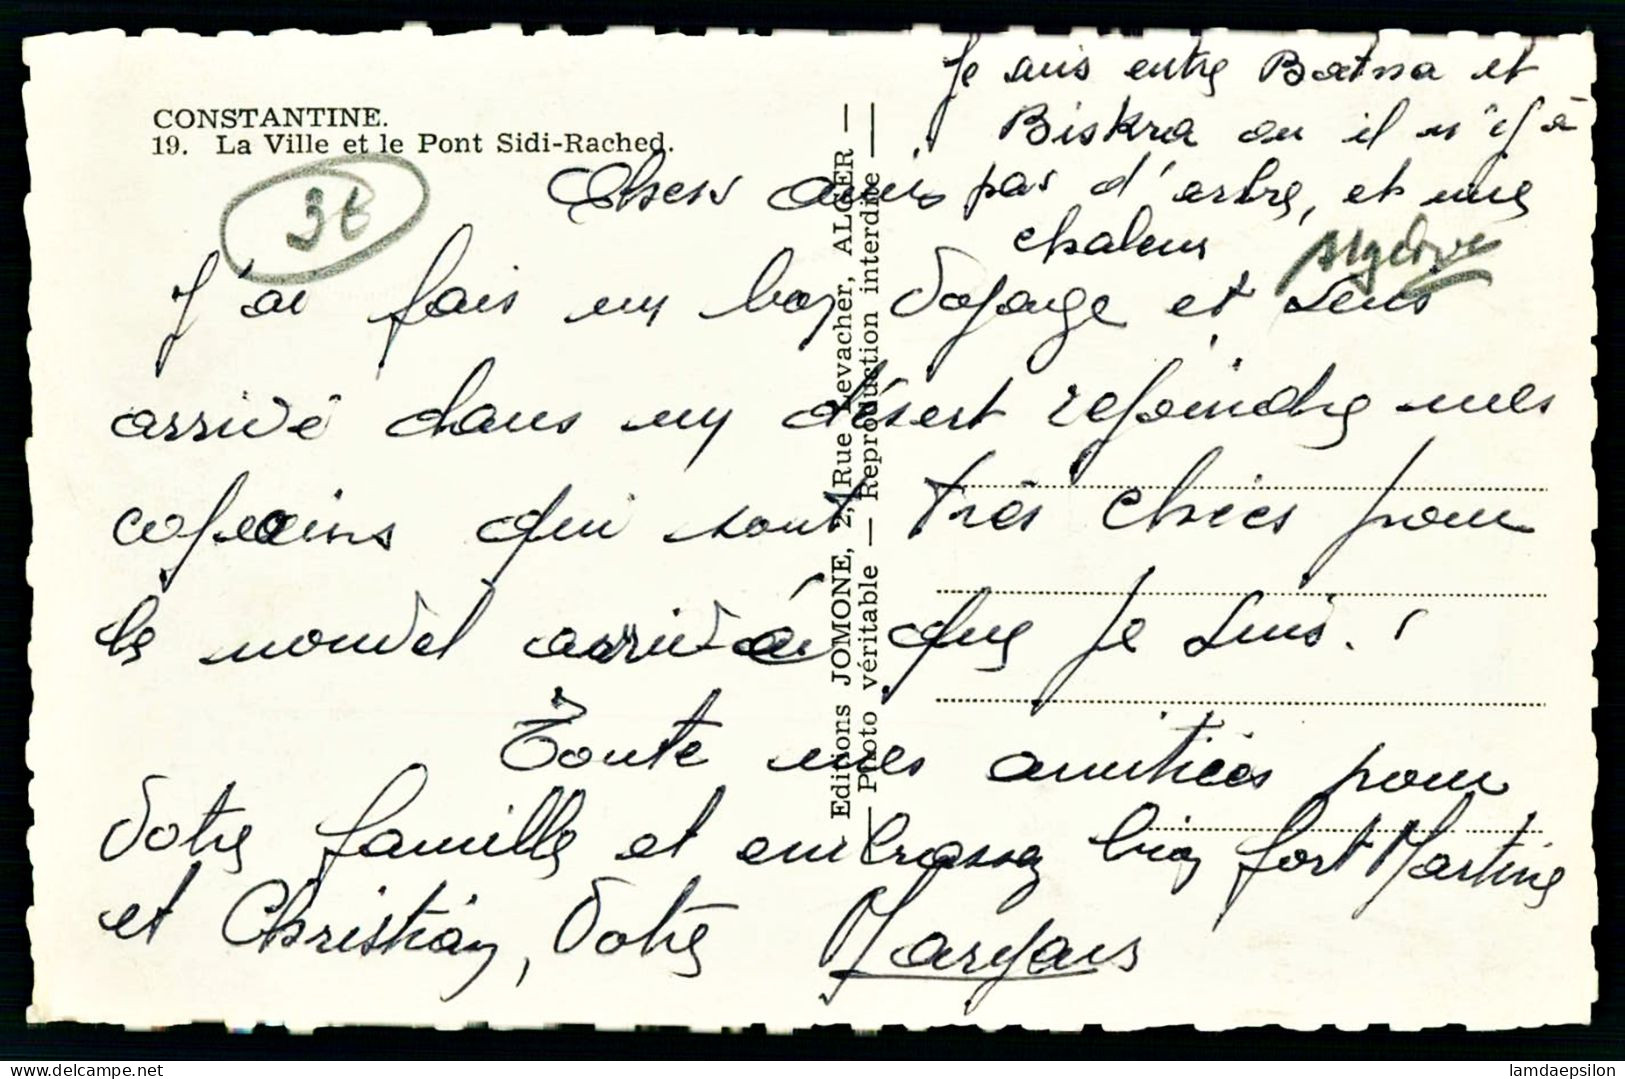 Je suis entre Batna et
Biskra ou il n'y a
pas d'arbre, et une
chaleur
CONSTANTINE.
19. La Ville et le Pont Sidi-Rached.
3€
Algérie
Chers amis
J'ai fais un bon voyage et suis
arrivé dans un désert rejoindre mes
copains qui sont très chics pour
le nouvel arrivé que je suis.!
Toute mes amitiées pour
votre famille et embrassez bien fort Martine
et Christian, votre
Editions JOMONE, 2, Rue Levacher, ALGER —
— Photo véritable — Reproduction interdite —
© delcampe.net
lamdaepsilon